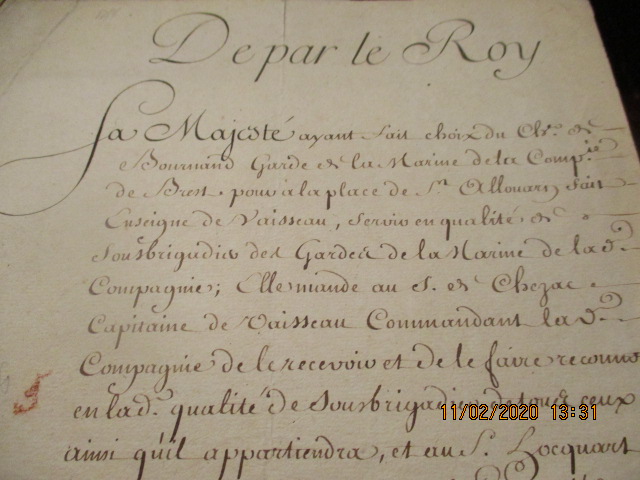 De par le Roy
Sa Majesté ayant fait choix du Ch.er de
Bournand Garde de la Marine de la Comp.ie
de Brest, pour à la place de S.r Allouarn fait
Enseigne de Vaisseau, servir en qualité de
Sousbrigadier des Gardes de la Marine de la d.e
Compagnie; Elle mande au S. de Chezac
Capitaine de Vaisseau Commandant la d.e
Compagnie de le recevoir et de le faire reconno
en la d.e qualité de Sousbrigadier de tous ceux
ainsi qu'il appartiendra, et au S.r Locquart
11/02/2020 13:31